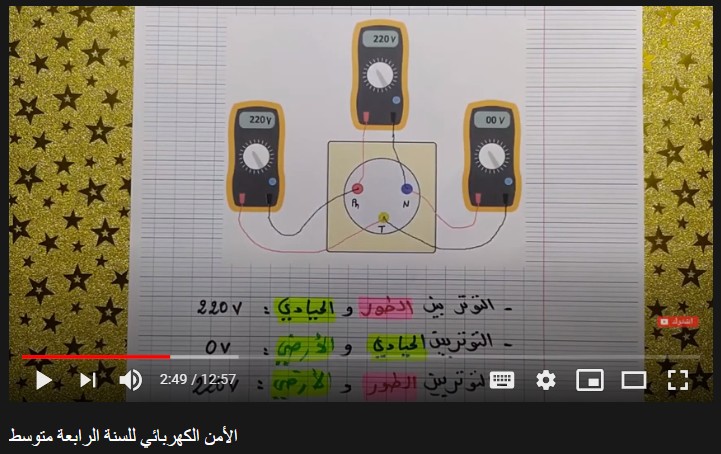 220 V
220 V
00 V
Ph
N
T
- التوتر بين الطور و الحيادي : 220V
- التوتر بين الحيادي و الأرضي : 0V
التوتر بين الطور و الأرضي : 220V
اشترك
2:49 / 12:57
الأمن الكهربائي للسنة الرابعة متوسط